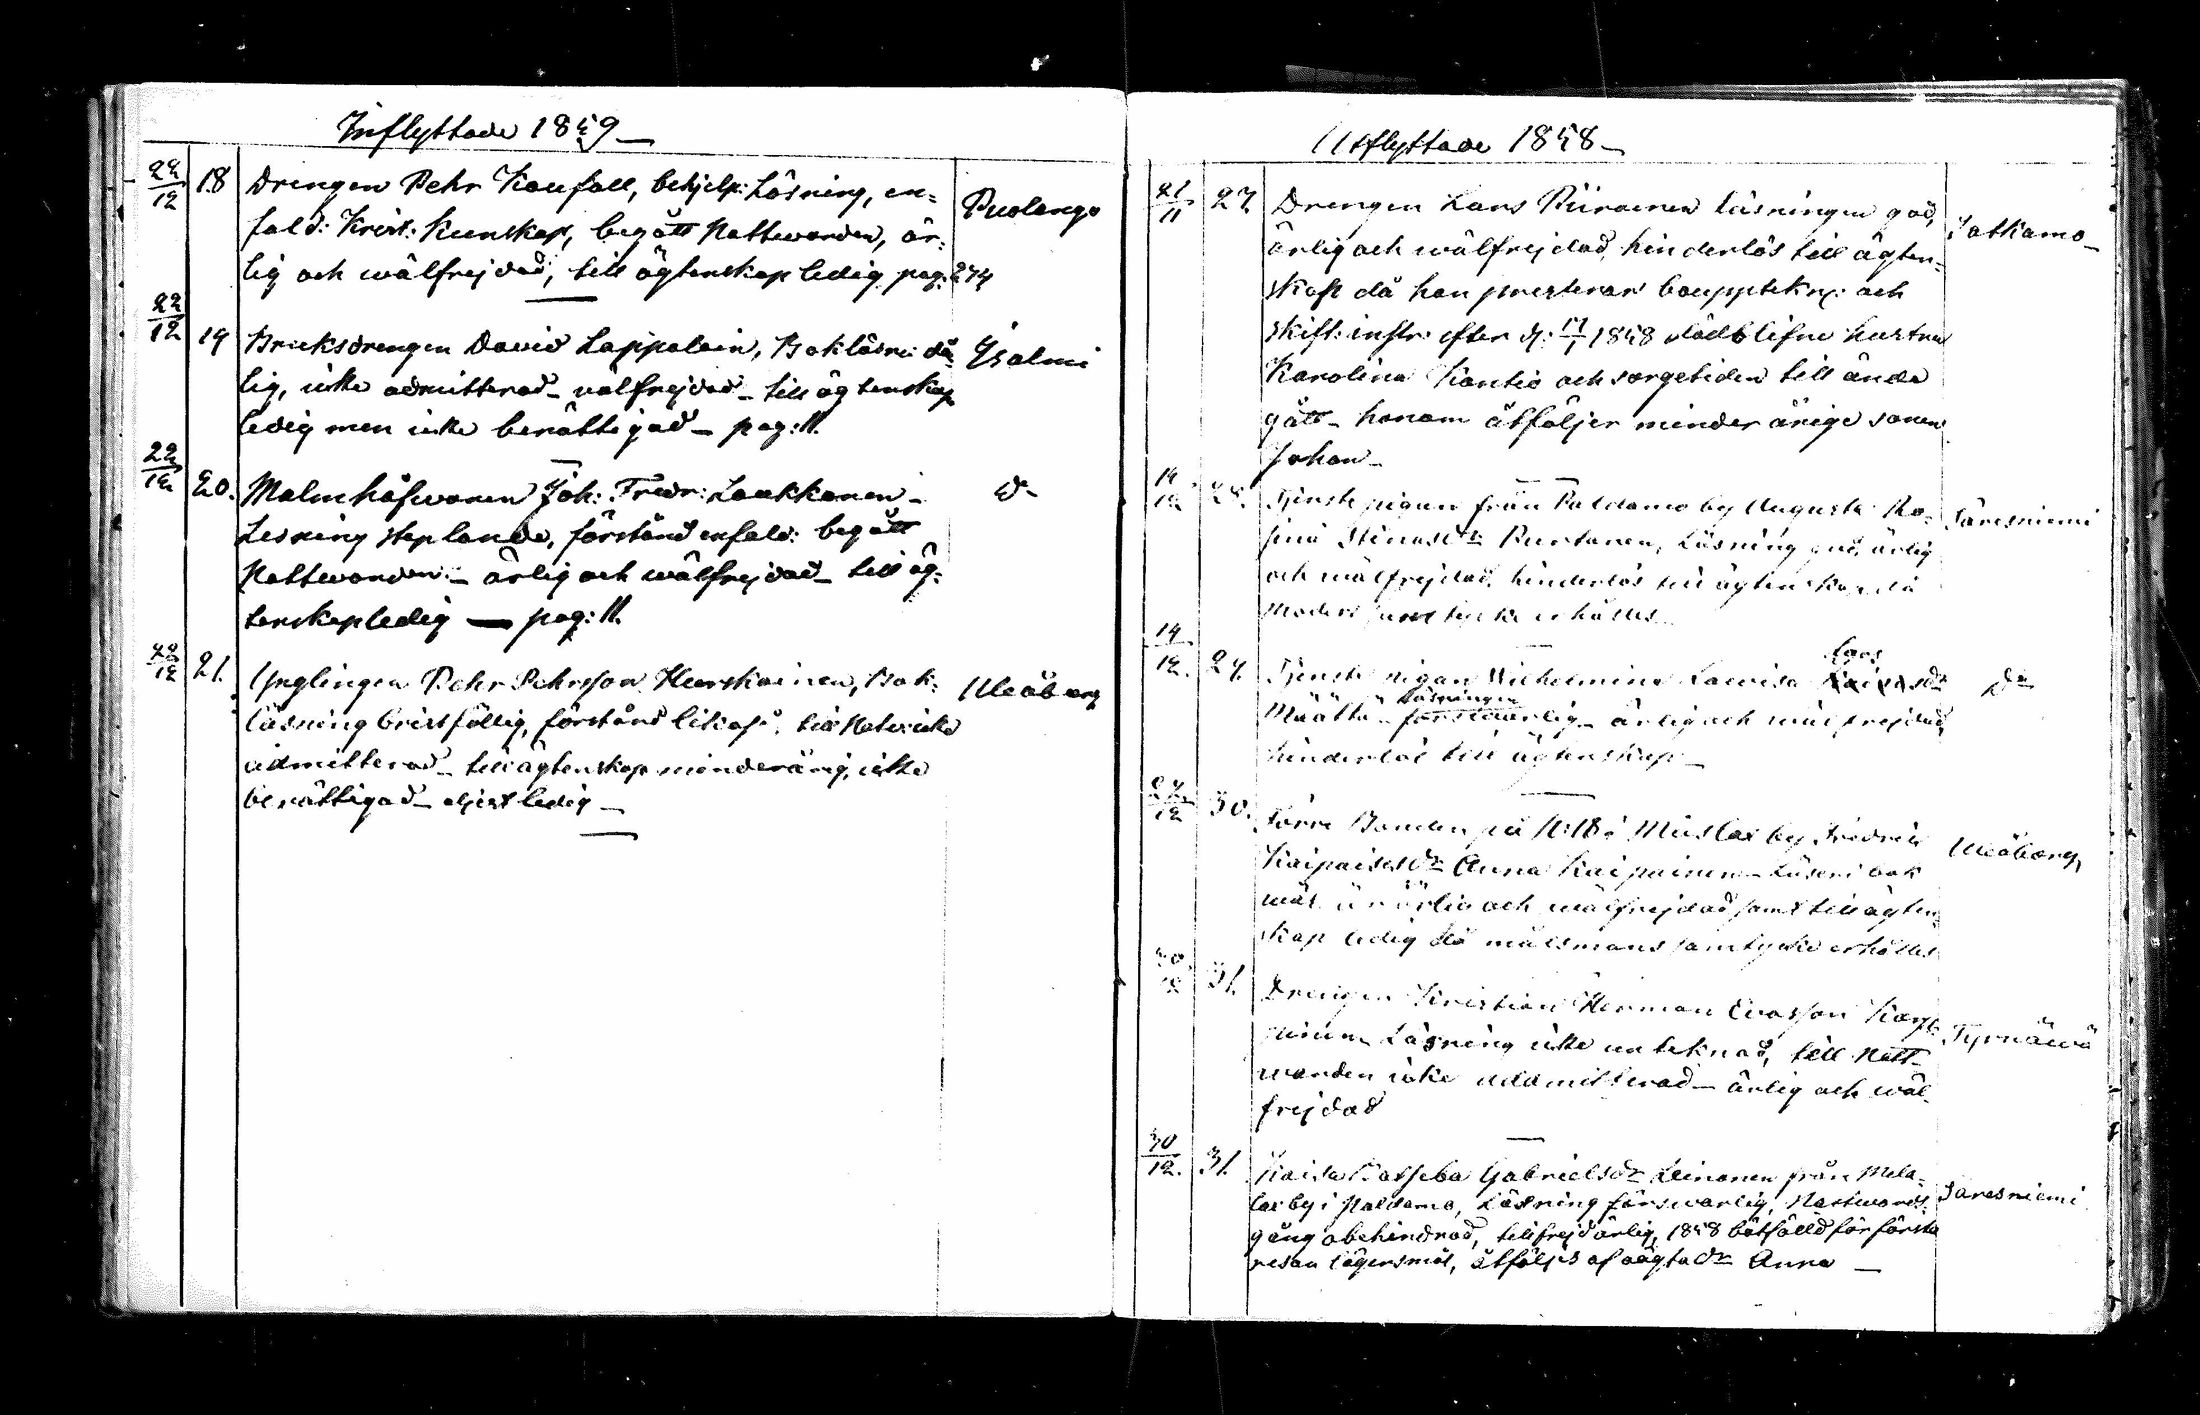 Inflyttade 1859
22/12 18 Drengen Pehr Kaufall, behjelp: Läsning, en=
fald: Krist: Kunskap, begått Nattwarden, är: Puolango
lig och wälfrejdad, till ägtenskap ledig pag: 274
22/12 19 Bruksdrengen David Lappalain, Bokläsn: då= Ijsalmi
lig, icke admitterad – välfrejdad – till ägtenskap
ledig men icke berättigad – pag: 11.
22/12 20. Malmhåfwaren Joh: Fredr: Laukkanen – d–
Lesning steplande, förstånd enfald: begått
Nattwarden – ärlig och wälfrejdad – till äg:
tenskap ledig — pag: 11.
22/12 21. Ynglingen Pehr Pehrsson Heiskainen, Bok: Uleåborg
läsning bristfällig, förstånd till Natv: icke
admitterad – till ägtenskap minderårig, icke
berättigad – ledig –
Utflyttade 1858
21/11 27. Drengen Lars Piirainen läsningen god,
ärlig och wälfrejdad, hinderlös till ägten= Sotkamo
skap då han presterar bouppteckn: och
skift: instr: efter d: 17/1 1858 dödblifne hustrun
Karolina Kantio och sorgetiden till ända
gått – honom åtföljer minderårige sonen
Johan –
14/12 28. Tjenstepigan från Paldamo by Augusta Ro= Säresniemi
sina Stinasdr Puntanen, Läsning god, ärlig
och wälfrejdad, hinderlös till ägtenskap då
moders samtycke erhålles
14/12. 29. Tjenste pigan Wilhelmina Lowisa Larsdr Do
Määttä – Läsningen försvarlig – ärlig och wälfrejdad,
hinderlös till ägtenskap –
27/12 30. Förre Bonden på N:18 i Mieslax by Fredric Uleåborg,
Kaipaises dr Anna Kaipainen – Läser i bok
wäl är ärlig och wälfrejdad samt till ägten=
skap ledig då målsmans samtycke erhålles
30/12 31. Drengen Kristian Herman Evasson Karp=
pinen Läsning icke antecknad, till Natt= Tyrnäwä
warden icke addmitterad – ärlig och wäl=
frejdad
30/12. 31. Kaisa Batseba Gabrielsdr Leinonen från Mela=
lax by i Paldamo, Läsning förswarlig, Nattwards Säresniemi
gång obehindrad, till frejd ärlig, 1858 bötfälld för första
resan lägersmål, åtföljes af oägta dr Anna –